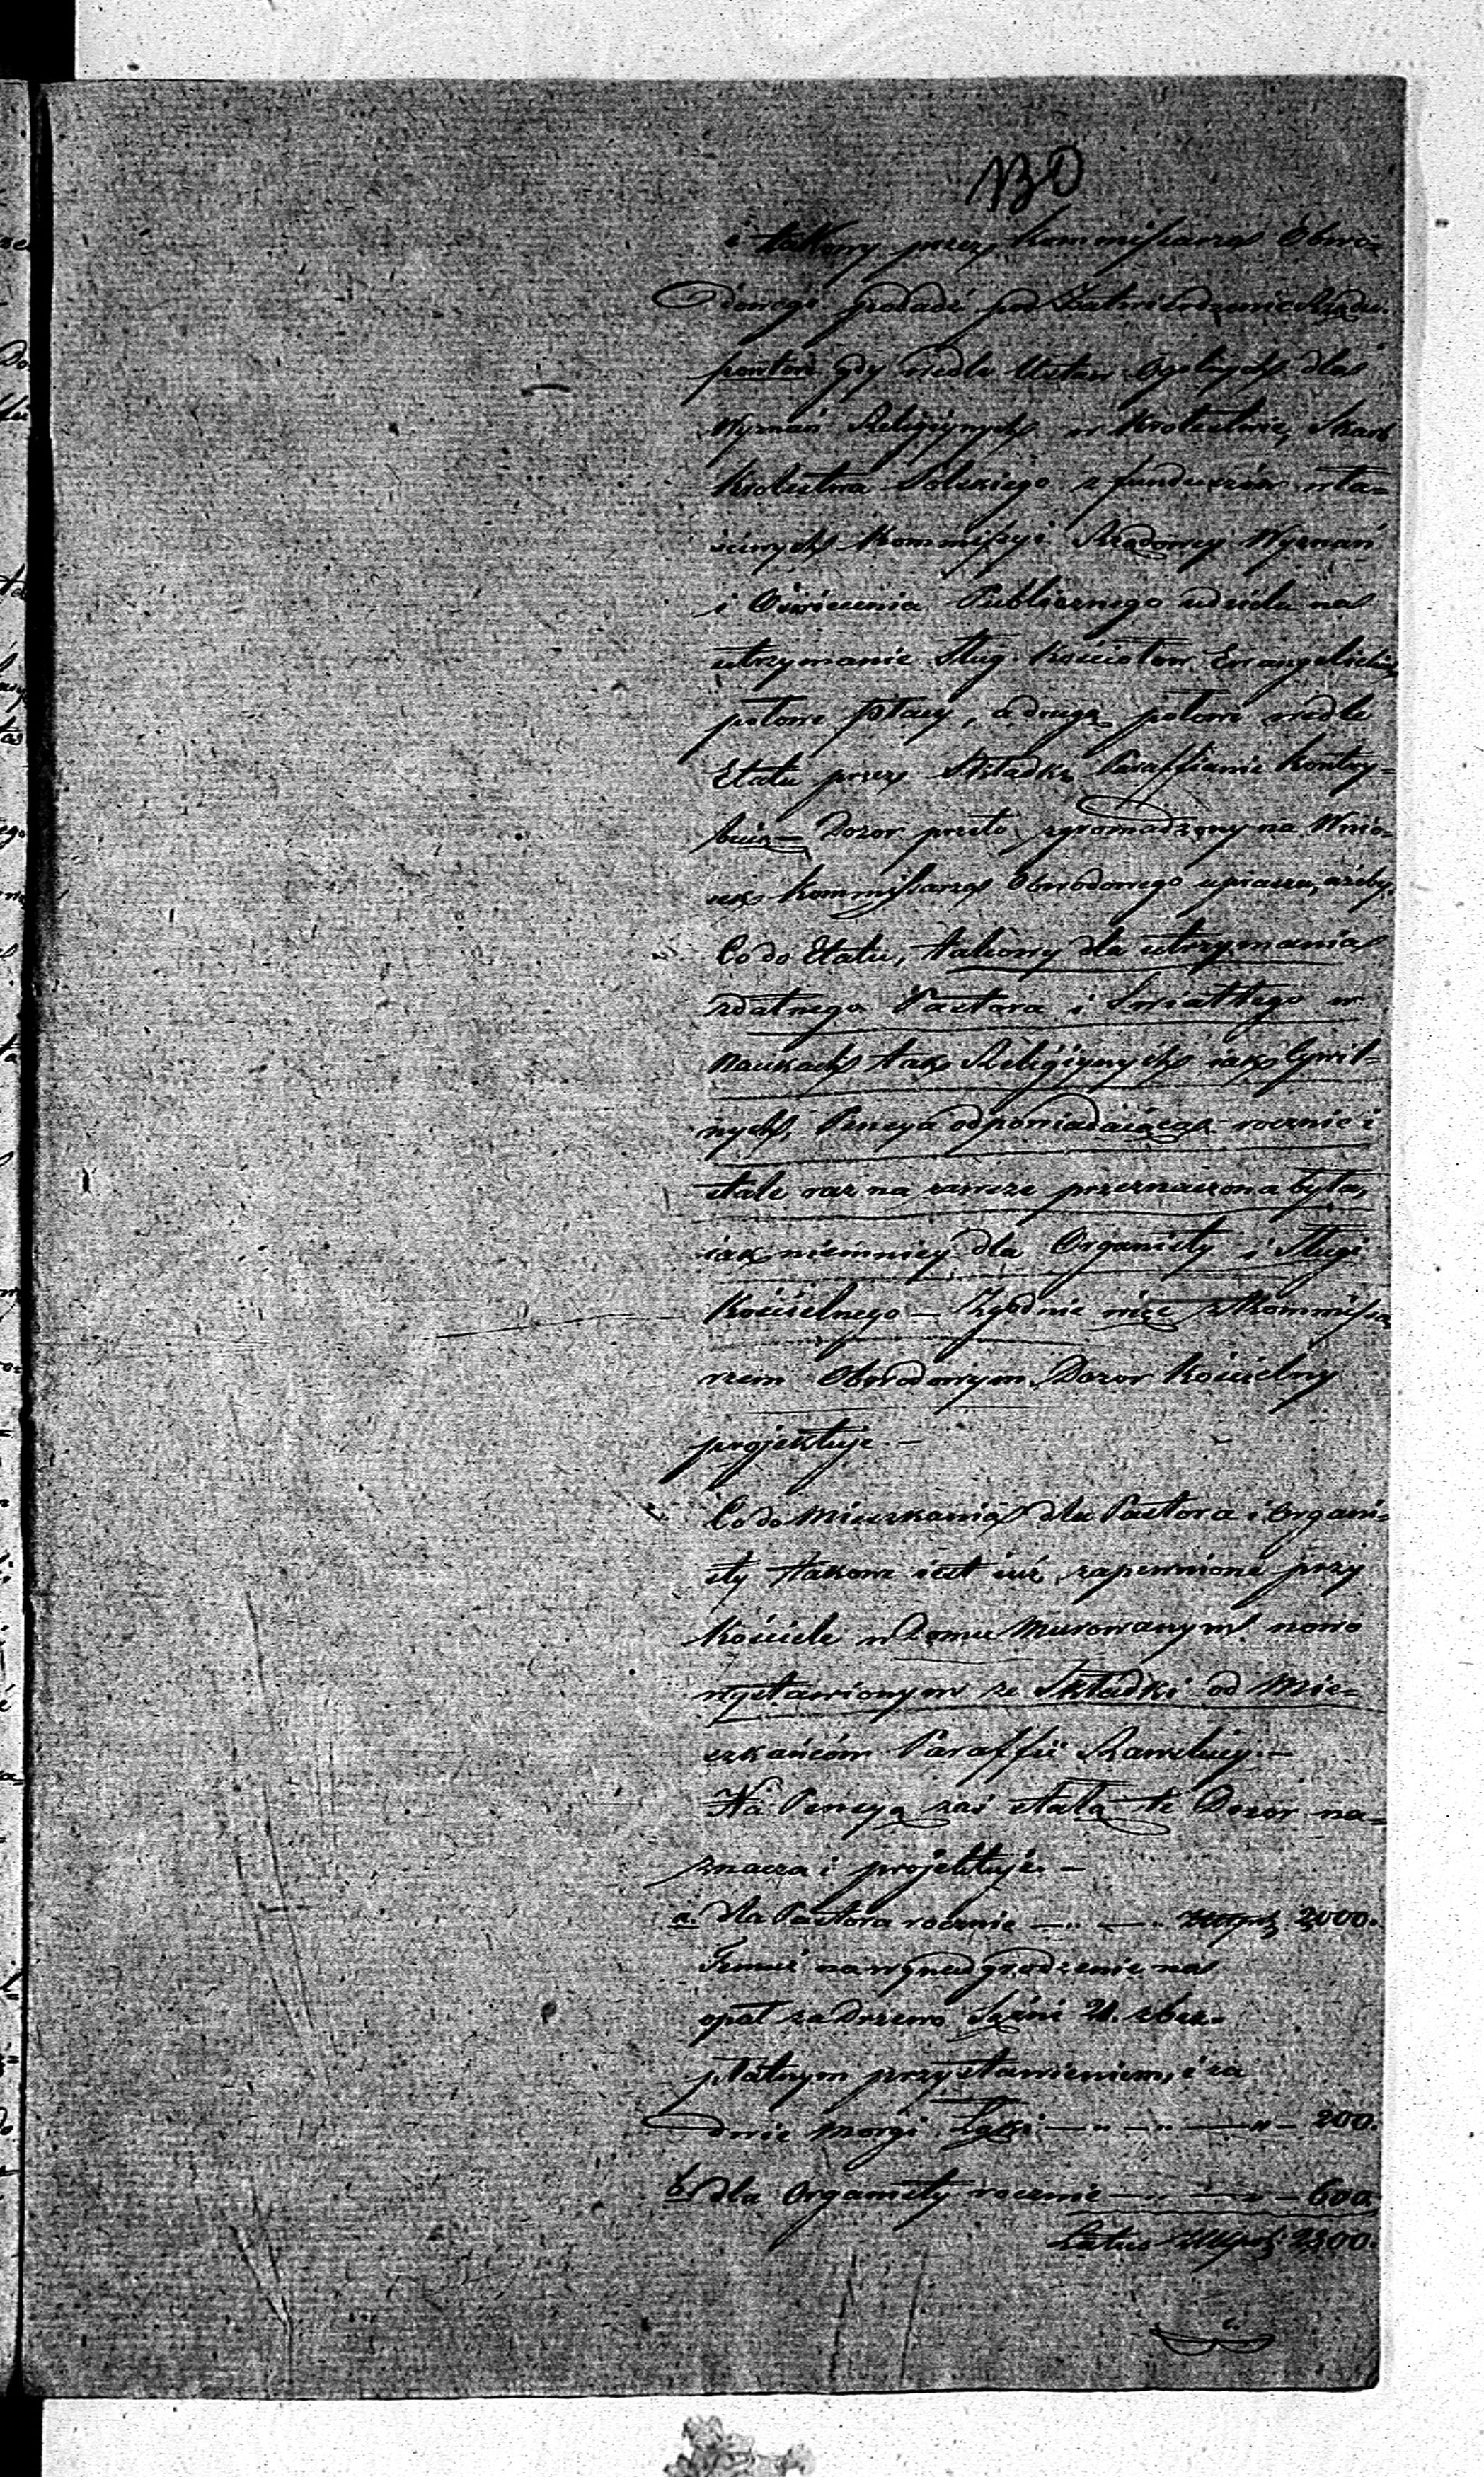 130
i takowy przez Kommissarza Obwo=
dowego podadź pod Zatwierdzenie Rządu.
powtóre gdy wedle Ustaw Ogólnych dla
Wyznań Religiynych w Krolestwie, Skarb
Krolestwa Polskiego z funduszów wła=
ściwych Kommissyi Rządowey Wyznań
i Oświecenia Publicznego udziela na
utrzymanie Sług Kościołow Ewangelickich
połowę płacy, a drugą połowę wedle
Etatu przez Składkę Paraffianie kontry=
buią — Dozor przeto zgromadzony na Wnio=
sek Kommissarza Obwodowego uprasza, ażeby
Co do Etatu, takowy dla utrzymania
zdatnego Pastora i Swiatłego w
naukach tak Religiynych iak Cywil=
nych, Pensya odpowiadaiąca rocznie i
stale raz na zawsze przeznaczona była,
iak niemniey dla Organisty i Sługi
Kościelnego — Zgodnie więc z Kommissa
rzem Obwodowym Dozor Kościelny
projektuje. —
Co do Mieszkania dla Pastora i Organi=
sty takowe iest iuż zapewnione przy
Kościele w Domu Murowanym nowo
wystawionym ze Składki od Mie=
szkańców Paraffii Rawskiey. —
Na Pensyą zaś stałą te Dozor na=
znacza i projektuje. —
a. dla Pastora rocznie —„ —„ Złtpol 2000.
Temuż na wynadgrodzenie na
opał za Drzewo Sążni 21. z bez=
płatnym przystawieniem, i za
dwie morgi Łąki —„ —„ —„ — 200.
b. dla Organisty rocznie —„ —„ — 600.
Latus Złtpol 2800.